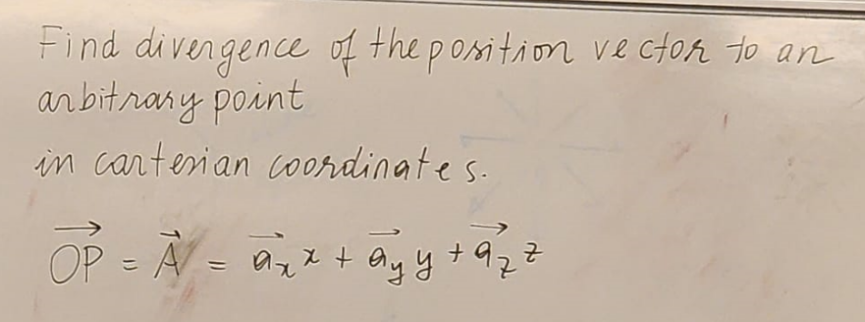 Find divergence of the position vector to an
arbitrary point
in cartesian coordinates.
$\overrightarrow{OP} = \vec{A} = \vec{a_x} x + \vec{a_y} y + \vec{a_z} z$